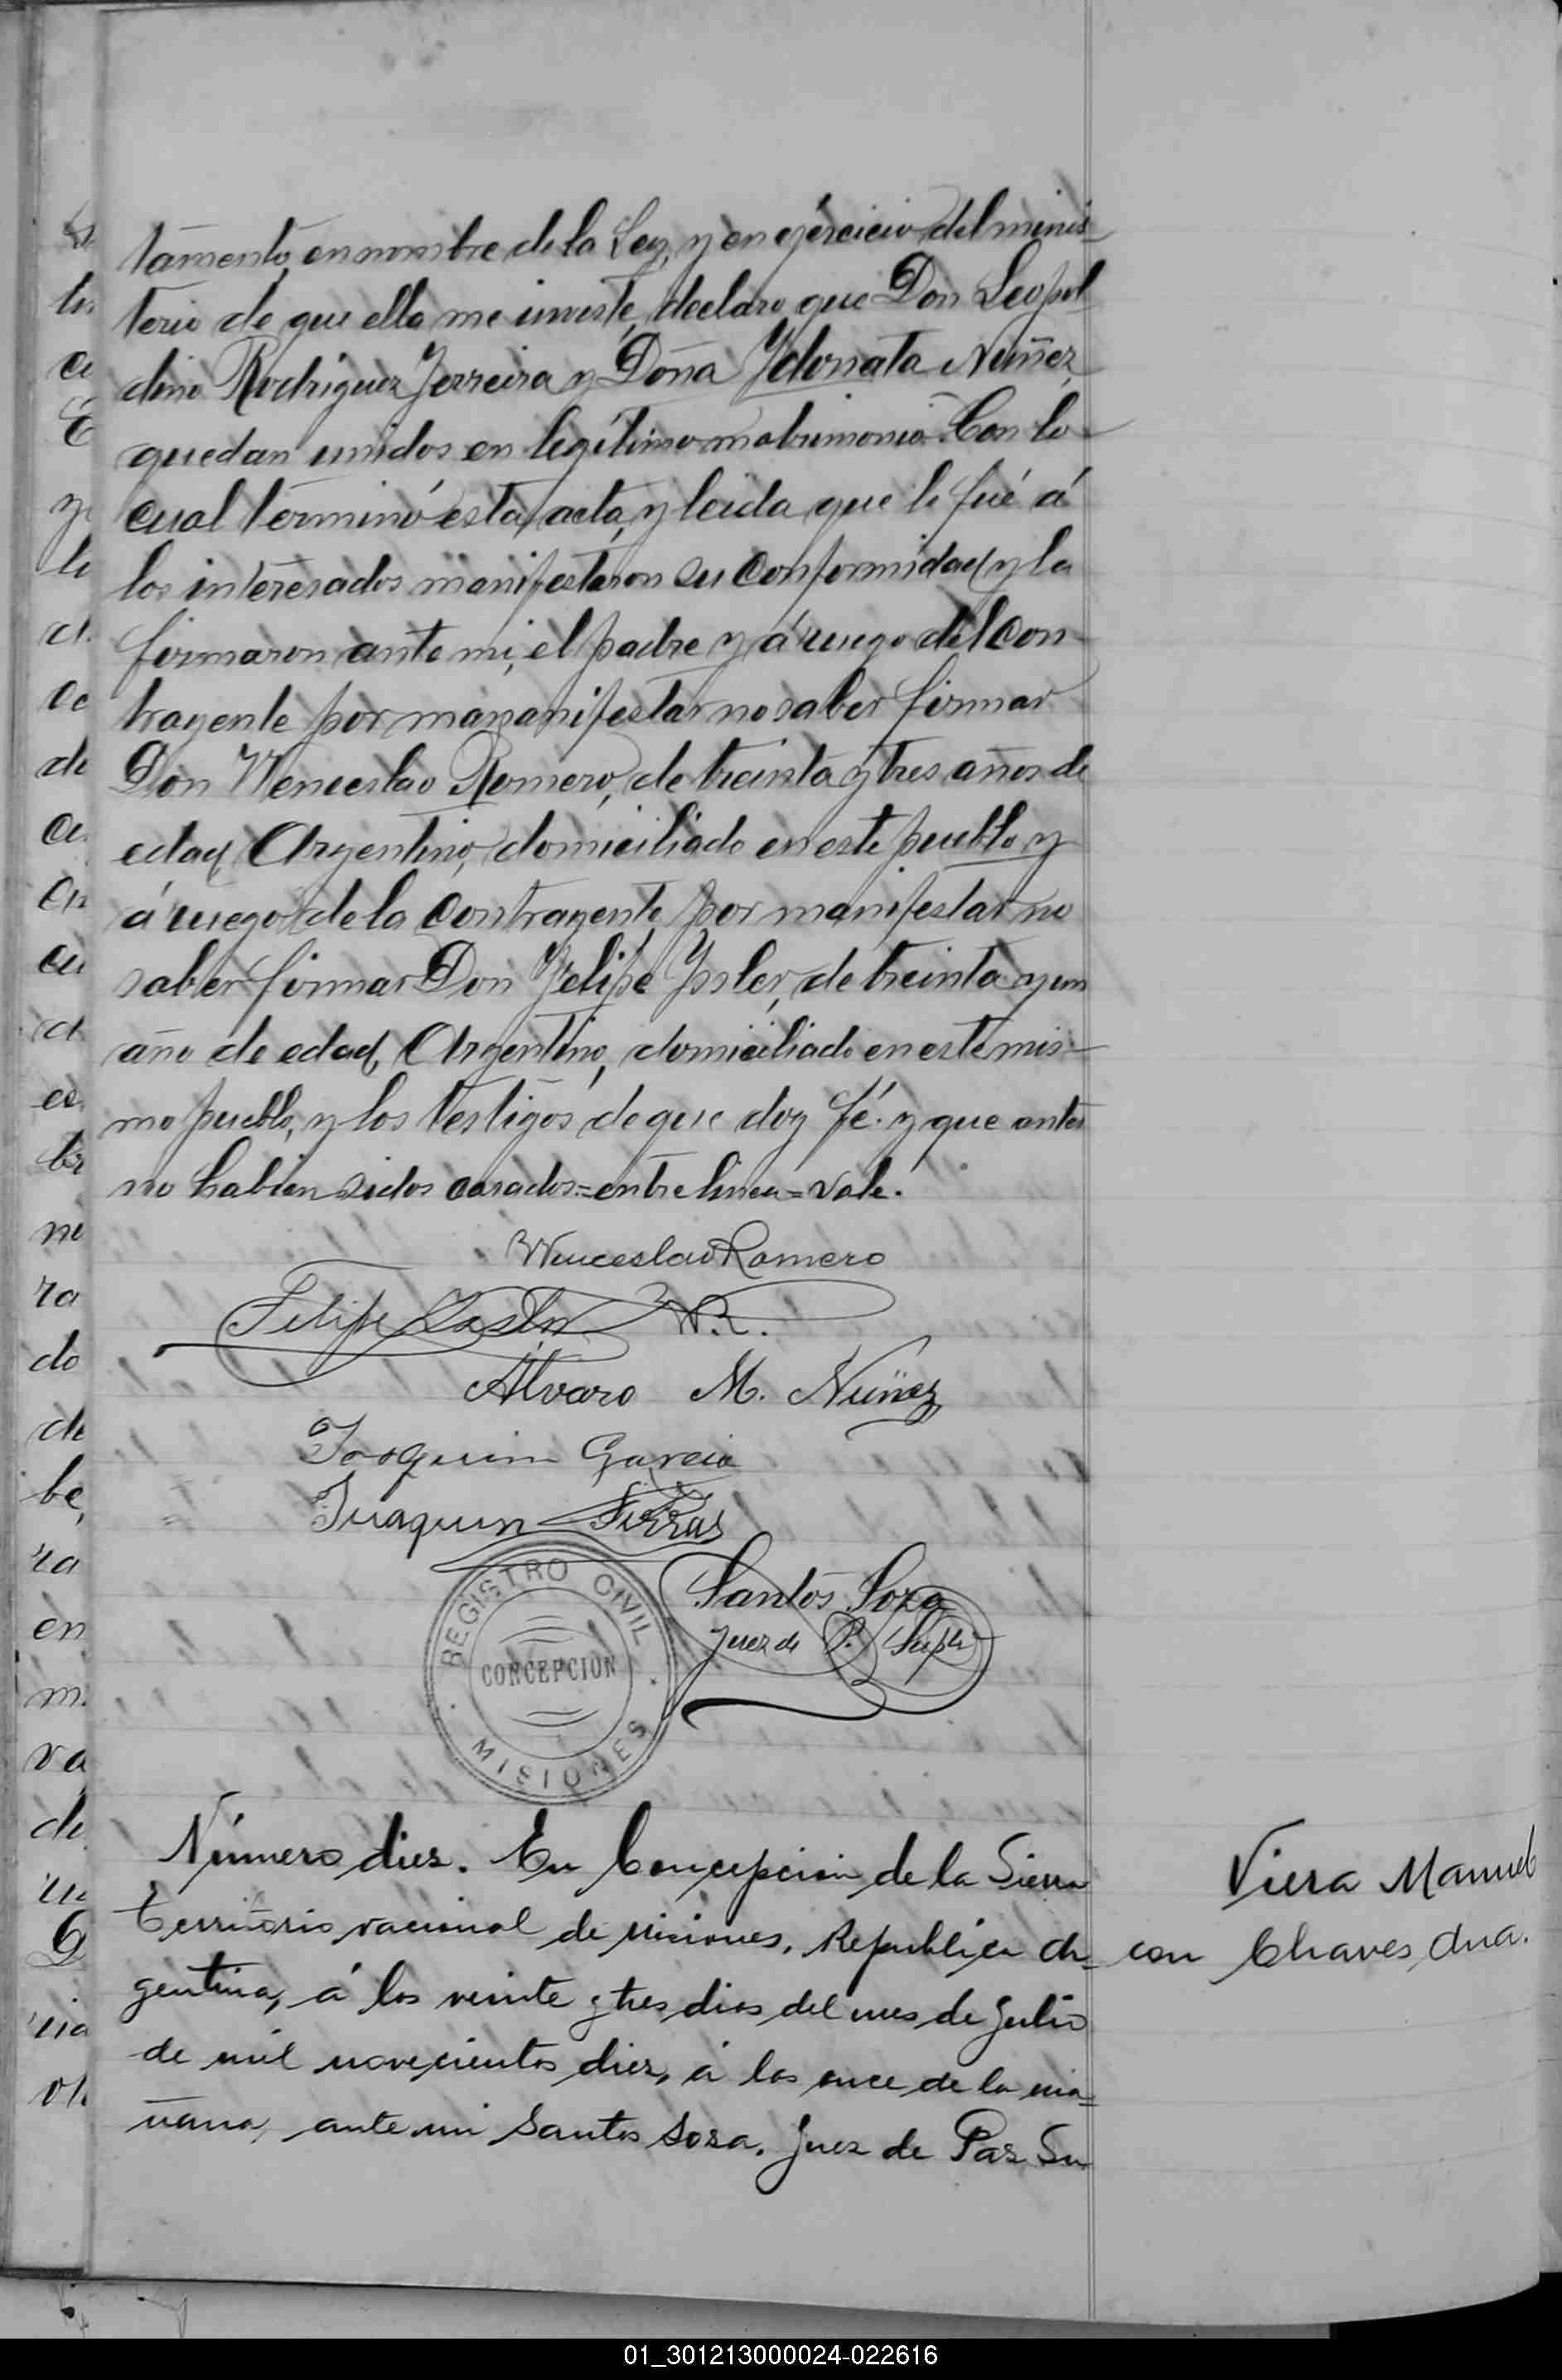 tamento, en nombre de la Ley, y en ejercicio del minis-
terio de que ella me inviste, declaro que Don Leopol-
dino Rodriguez Ferreira y Doña Ydonata Nuñez,
quedan unidos en legítimo matrimonio. Con lo
cual terminó esta acta, y leida que le fué á
los interesados manifestaron su conformidad y la
firmaron ante mi, el padre y á ruego del con-
trayente por mananifestar no saber firmar
Don Wenceslao Romero, de treinta y tres años de
edad, Argentino, domiciliado en este pueblo y
á ruego de la contrayente, por manifestar no
saber firmar Don Felipe Ysler, de treinta y un
año de edad, Argentino, domiciliado en este mis-
mo pueblo, y los testigos de que doy fé. y que antes
no habian sidos casados = entre linea = vale.
Wenceslao Romero
Felipe W.R.
Alvaro M. Nuñez
Joaquim Garcia
Juaquin Ferras
REGISTRO CIVIL
CONCEPCION
MISIONES
Santos Soza
Juez de P. Suple
Número diez. En Concepcion de la Sierra
Territorio nacional de Misiones, Republica Ar-
gentina, á los veinte y tres dias del mes de Julio
de mil novecientos diez, á las once de la ma-
ñana, ante mi Santos Soza. Juez de Paz Su
Viera Manuel
con Chaves Ana.
01_301213000024-022616